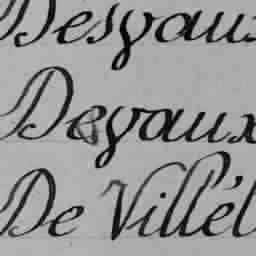 Desvaux
Devaux
De Villél